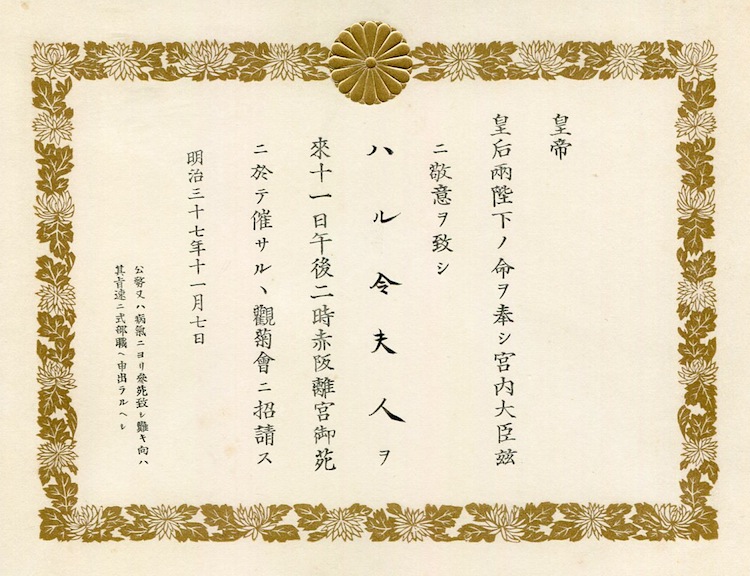 皇帝
皇后兩陛下ノ命ヲ奉シ宮内大臣玆
ニ敬意ヲ致シ
ハル令夫人ヲ
來十一日午後二時赤阪離宮御苑
ニ於テ催サルヽ觀菊會ニ招請ス
明治三十七年十一月七日
公務又ハ病氣ニヨリ參苑致シ難キ向ハ
其旨速ニ式部職ヘ申出ラルヘシ